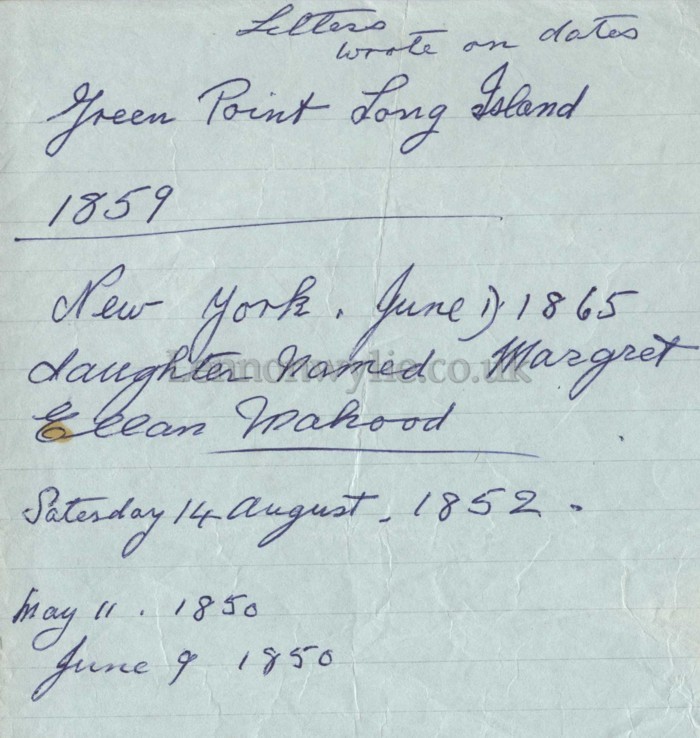 Letters
wrote on dates
Green Point Long Island
1859
New York. June 1) 1865
daughter Named Margret
Ellan Mahood
Lennonwylie.co.uk
Satesday 14 August. 1852.
May 11. 1850
June 9 1850